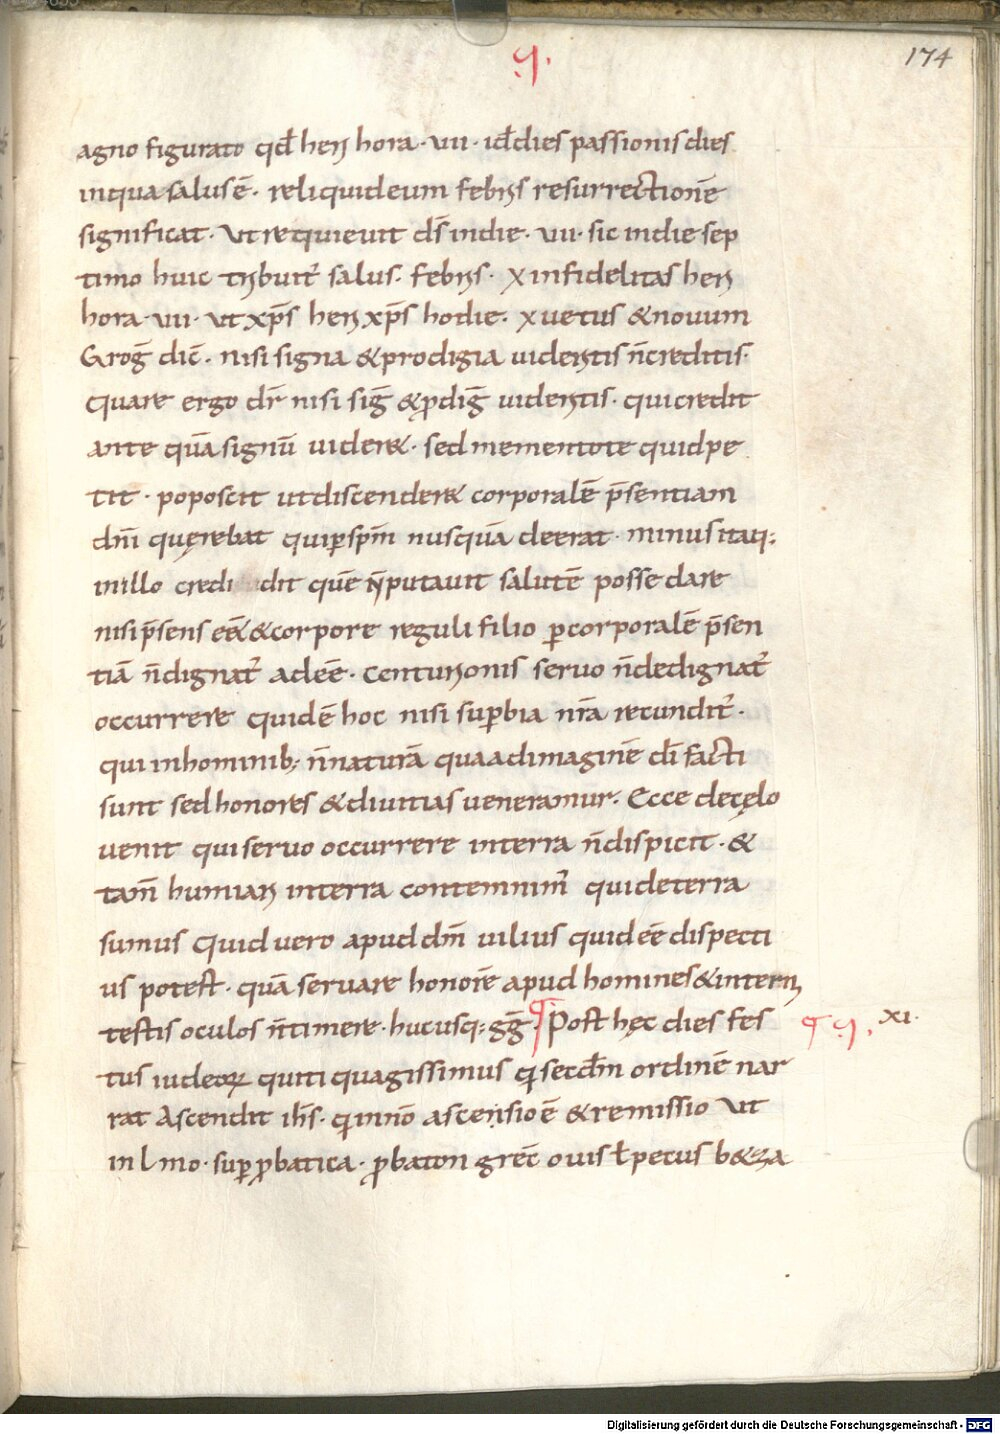 ·ꝯ·
174
agno figurato qđ heri hora · vii · id ÷ dies passionis dies
inqua salus ē · reliquid eum febris resurrectionē
significat · Ut requieuit ds̄ indie · vii · sic indie sep
timo huic tribuit̄ salus · febris · x infidelitas heri
hora · vii · ut xp̄s heri xp̄s hodie · x uetus & nouum
Grog̅ dic̄ · nisi signa & prodigia uideritis n̄creditis ·
Quare ergo dr̄ nisi sig̅ & ꝓdig̅ uideritis · qui credit
ante quā signū uider& · sed mementote quid pe
tit · poposcit ut discender& corporalē p̄sentiam
dn̄i quęrebat qui ꝑ sp̄m nusquā deerat · minus itaq:
inillo credi dit quē n̄ putauit salutē posse dare
nisi p̄sens e͞e& & corpore reguli filio ꝑ corporalē p̄sen
tiā n̄ dignat̄ adee̅ · centurionis seruo n̄ dedignat̄
occurrere quid ē hoc nisi suꝑbia nr̄a recundit̄ ·
qui inhominib; n̄ naturā qua ad imaginē dī facti
sunt sed honores & diuitias ueneramur · Ecce de cęlo
uenit qui seruo occurrere interra n̄ dispicit · &
tam̄ humiari interra contemnim̄ qui de terra
sumus Quid uero apud dm̄ uilius quid ee̅ dispecti
us potest · quā seruare honorē apud homines & interni
testis oculos n̄ timere · hucusq: gg̅ ¶ Post hęc dies fes
¶ ꝯ · xi ·
tus iudeoꝝ quiti quagissimus q̄ secdm̄ ordinē nar
rat Ascendit ih̄s · q̄ inno̅ ascensio ē & remissio Ut
in l mo · suꝑ ꝓbatica · ꝓbaton grec̄ ouis ł pecus b&za
Digitalisierung gefördert durch die Deutsche Forschungsgemeinschaft - DFG